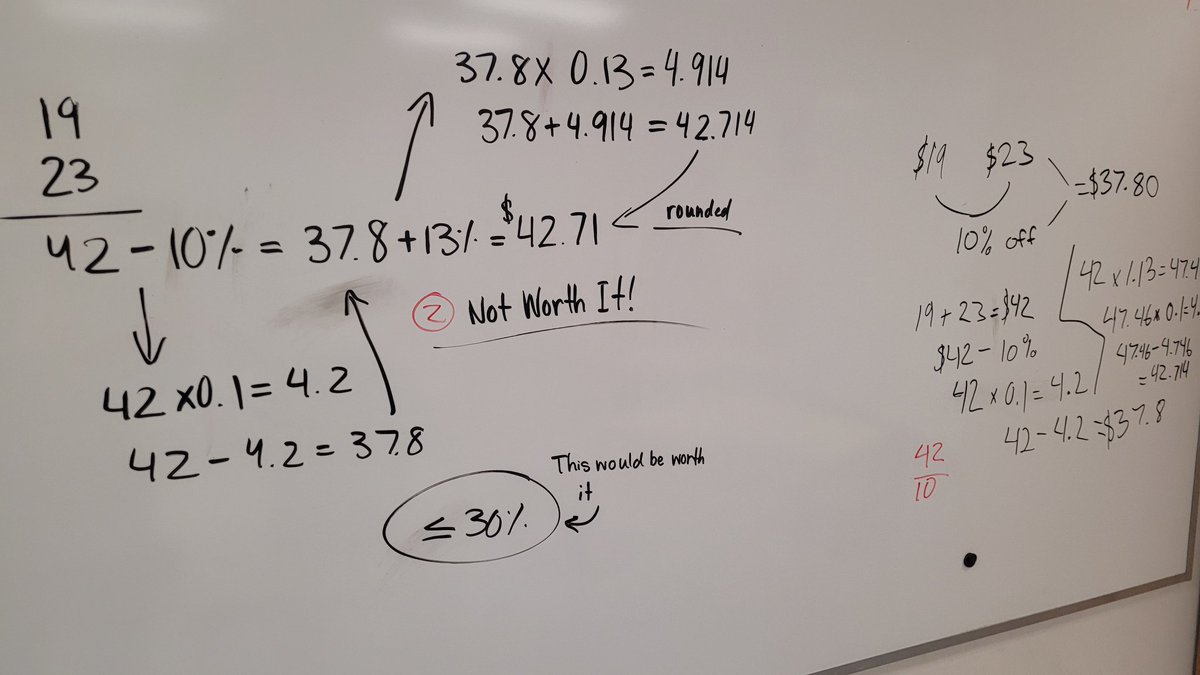 37.8 x 0.13 = 4.914
37.8 + 4.914 = 42.714
19
23
42 - 10% = 37.8 + 13% = $42.71
rounded
2 Not Worth It!
42 x 0.1 = 4.2
42 - 4.2 = 37.8
This would be worth
it
≤ 30%
$19 $23 = $37.80
10% off
19 + 23 = $42
$42 - 10%
42 x 0.1 = 4.2
42 - 4.2 = $37.8
42 x 1.13 = 47.4
47.46 x 0.1 = 4.
47.46 - 4.746
= 42.714
42
10